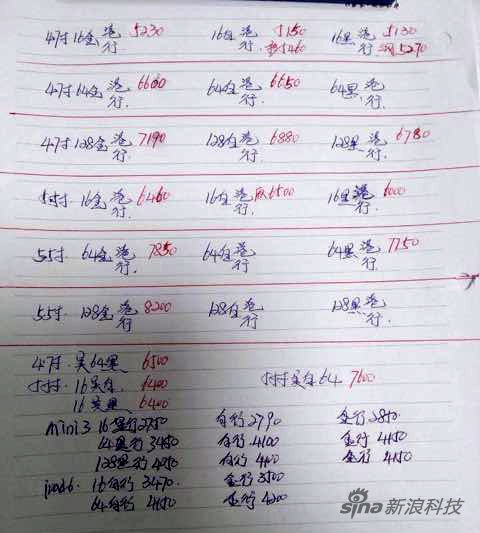 4.7寸 16金 港行 5230 16白 港行 5150 16黑 港行 5130
5270
4.7寸 64金 港行 6600 64白 港行 6650 64黑 港行
4.7寸 128金 港行 7190 128白 港行 6880 128黑 港行 6780
16金 港行 6460 16白 港行 6500 16黑 港行 6000
5.5寸 64金 港行 7850 64白 港行 64黑 港行 7750
5.5寸 128金 港行 8200 128白 港行 128黑 港行
4.7寸 美64黑 6500
5.5寸 16美白 6400 5.5寸美白64 7600
16美黑 6400
mini3 16黑行2750 白行2790 金行2850
64黑行3450 白行4100 金行4150
128黑行4050 白行4100 金行4150
ipad6 16白行3470 金行3500
64白行4150 金行4200
sina 新浪科技